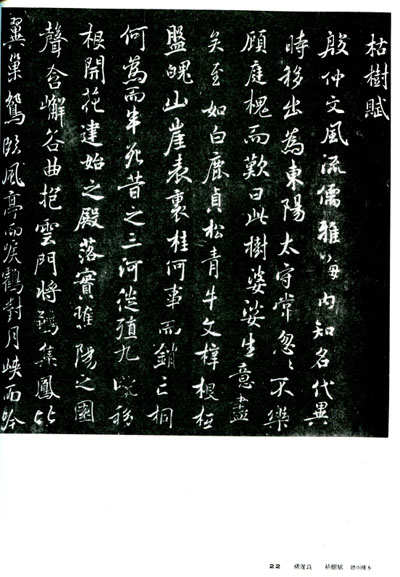 枯樹賦
殷仲文風流儒雅海内知名代異
時移出為東陽太守常忽〻不樂
顧庭槐而歎曰此樹婆娑生意盡
矣至如白鹿貞松青牛文梓根柢
盤魄山崖表裏桂何事而銷亡桐
何為而半死昔之三河徙殖九畹移
根開花建始之殿落實睢陽之園
聲含嶰谷曲抱雲門將鶵集鳳比
翼巢鴛臨風亭而唳鶴對月峽而吟
22 褚遂良 枯樹賦